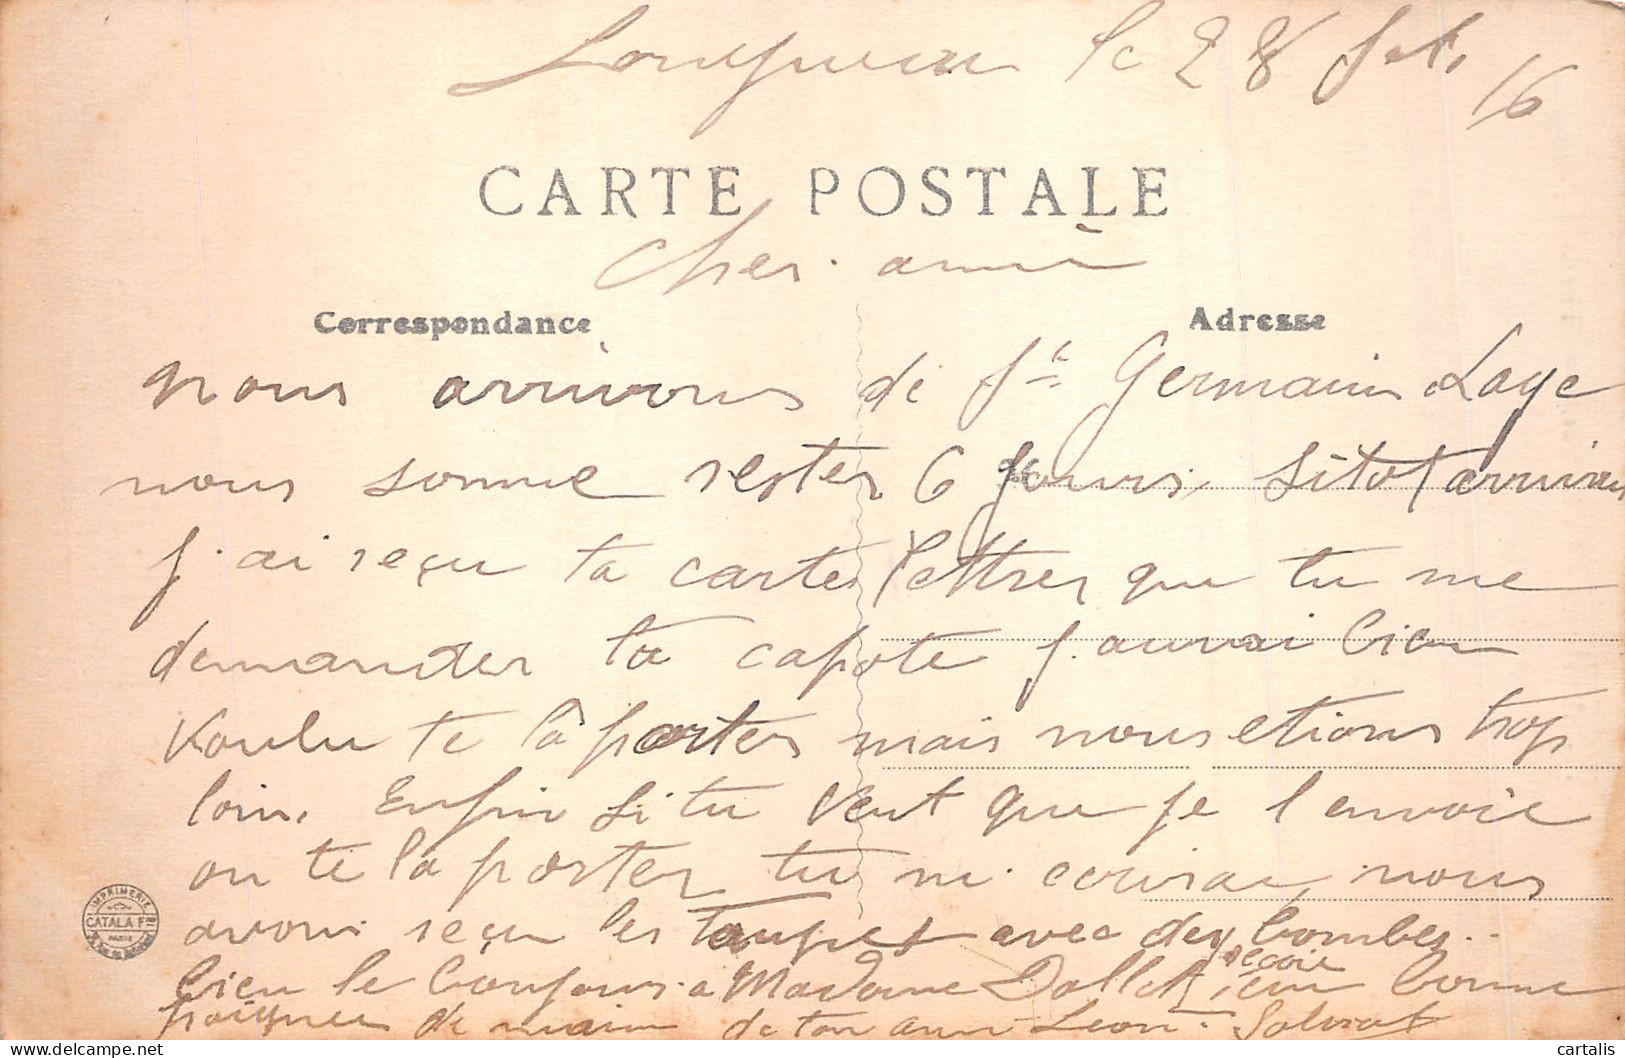 Longueau le 28 Fet. 16
CARTE POSTALE
Cher. amie
Correspondance
Adresse
nous arrivons de St Germain Laye
nous somme rester 6 jours, sitot arrivons
j.ai reçu ta carte lettrer que tu me
demander ta capote j.aurai bien
voulu te là porter mais nous etions trop
loin. Enfin si tu veut que je l envoie
ou te la porter tu m. ecrirai, nous
avons reçu les avec des bombes..
bien le bonjour a Madame reçoie bonne
poignee de main de ton ami Leon.
IMPRIMERIE
CATALA Fres
PARIS
cartalis
delcampe.net